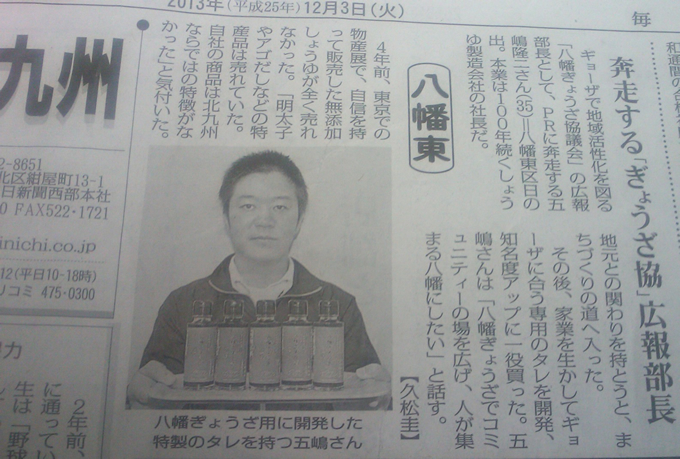 2013年(平成25年)12月3日(火)
毎
奔走する「ぎょうざ協」広報部長
八幡東
ギョーザで地域活性化を図る
「八幡ぎょうざ協議会」の広報
部長として、PRに奔走する五
嶋隆二さん(35)＝八幡東区日の
出。本業は100年続くしょう
ゆ製造会社の社長だ。
4年前、東京での
物産展で、自信を持
って販売した無添加
しょうゆが全く売れ
なかった。「明太子
やアゴだしなどの特
産品は売れていた。
自社の商品は北九州
ならではの特徴がな
かった」と気付いた。
地元との関わりを持とうと、ま
ちづくりの道へ入った。
その後、家業を生かしてギョ
ーザに合う専用のタレを開発、
知名度アップに一役買った。五
嶋さんは「八幡ぎょうざでコミ
ュニティーの場を広げ、人が集
まる八幡にしたい」と話す。
【久松圭】
八幡ぎょうざ用に開発した
特製のタレを持つ五嶋さん
九州
2-8651
北区紺屋町13-1
日新聞西部本社
0 FAX522-1721
inichi.co.jp
12(平日10-18時)
リコミ 475-0300
2年前、
に通ってい
生は「野球